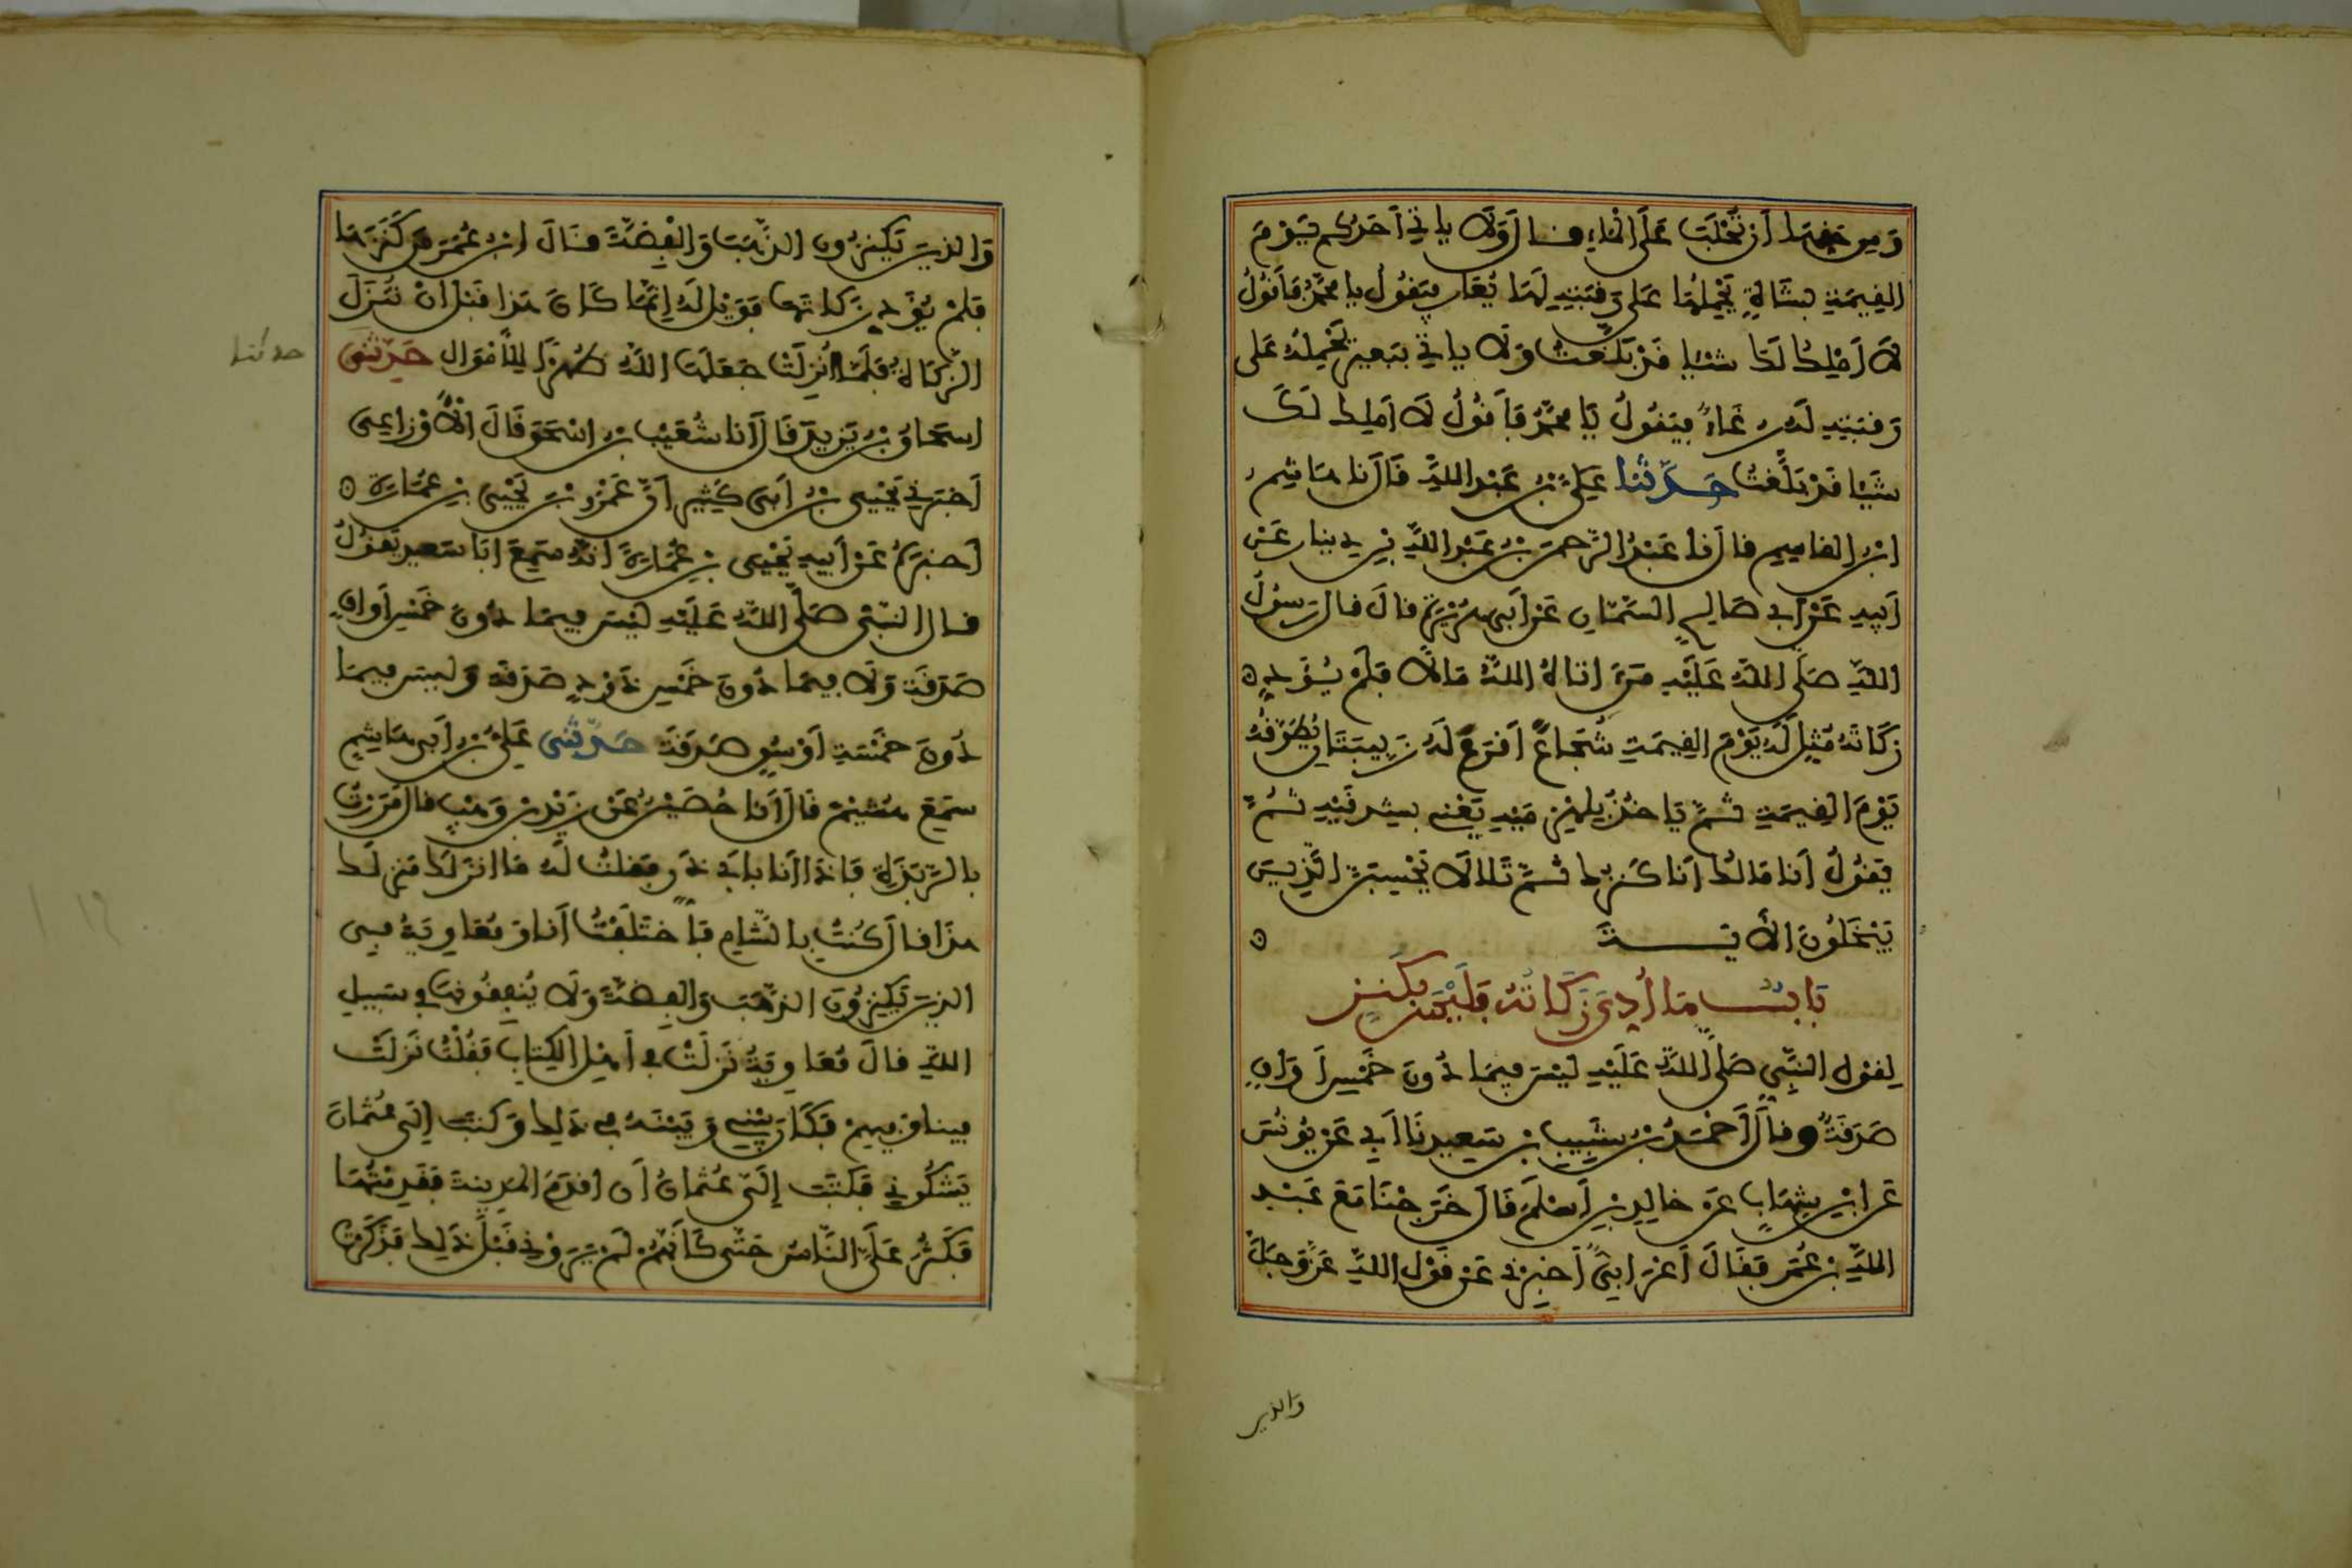 وَمِن حَقِّهَا أَن تُحْلَبَ عَلَى الْمَاءِ قال وَلَا يَاتِي أَحَدُكُم يَوْمَ
القِيمَةِ بِشَاةٍ يَحْمِلُهَا عَلَى رَقَبَتِهِ لَهَا يُعَارٌ فيَقُولُ يا مُحَمَّدُ فَأَقُولُ
لَا أَمْلِكُ لَكَ شَيْـا قَدْ بَلَّغْتُ وَلَا يَاتِي بِبَعِيرٍ يَحْمِلُهُ عَلى
رَقَبَتِهِ لَهُ رُغَاءٌ فيَقُولُ يَا مُحَمَّدُ فَأَقُولُ لَا أَملِكُ لَكَ
شَيْـا قَدْ بَلَّغْتُ حَدَّثَنا عَلِيُّ بْنُ عَبْدِ اللَّهِ قَالَ نا هَاشِمُ
ابْنُ القَاسِمِ قال نا عَبْدُ الرَّحمَنِ بْنُ عَبْدِ اللَّهِ بْنِ دِينار عَنْ
أَبِيهِ عَنْ أَبِي صَالِحٍ السَّمَّانِ عَنْ أَبِي هُرَيْرَةَ قالَ قال رَسولُ
اللَّهِ صَلَّى اللَّهُ عَلَيْهِ مَنَ اتَاهُ اللَّهُ مَالًا فَلَمْ يُؤَدِّ
زَكَاتَهُ مُثِّلَ لَهُ يَوْمَ القِيمَةِ شُجَاعٌ أَقْرَعُ لَهُ زَبِيبَتَانِ يُطَوَّقُهُ
يَوْمَ القِيمَةِ ثُمَّ يَاخُذُ بِلِهْزِمَيْهِ يَعْنِي بِشِدْقَيْهِ ثُمَّ
يَقُولُ أَنَا مَالُكَ أَنَا كَنْزُكَ ثُمَّ تَلَا لَا تَحْسِبَنَّ الَّذِينَ
يَبْخَلُونَ الأيَـــةَ
بَابُ مَا أُدِّيَ زَكَاتُهُ فَلَيْسَ بِكَنْزٍ
لِقَوْلِ النَّبِيِّ صَلَّى اللَّهُ عَلَيْهِ لَيْسَ فِيمَا دُونَ خَمْسِ أَوَاقٍ
صَدَقَةٌ وقَالَ أَحْمَدُ بْنُ شَبِيبِ بْنِ سَعِيدٍ نَا أَبِي عَنْ يُونُسَ
عَنِ ابْنِ شِهَابٍ عَنْ خالِدِ بْنِ أَسْلَمَ قَالَ خَرَجْنَا مَعَ عَبْدِ
اللَّهِ بْنِ عُمَرَ فَقَالَ أَعْرَابِيٌّ أَخْبِرْنِي عَنْ قَوْلِ اللَّهِ عَزَّ وَجَلَّ
والذين
وَالذِينَ يَكْنِزُونَ الذَّهَبَ وَالْفِضَّةَ قَالَ ابْنُ عُمَرَ مَن كَنَزَهَا
فَلَمْ يُؤَدِّ زَكَاتَهَا فَوَيْلٌ لَهُ إِنَّمَا كَانَ هَذا قَبْلَ أَنْ تُنْزَلَ
الزَّكَاةُ فَلَمَّا أُنْزِلَتْ جَعَلَهَا اللَّهُ طُهْرًا لِلأَمْوَالِ حَدَّثَنِي
حدثنا
إسحَاقُ بْنُ يَزِيدَ قَالَ أَنا شُعَيْبُ بْنُ إِسْحَقَ قَالَ الأَوْزَاعِيُّ
أَخْبَرَنِي يَحْيَى بْنُ أَبِي كَثِيرٍ أَنَّ عَمْرَو بْنَ يَحْيَى بْنِ عُمَارَةَ
أَخْبَرَهُ عَنْ أَبِيهِ يَحْيَى بْنِ عُمَارَةَ أَنَّهُ سَمِعَ أَبَا سَعِيدٍ يَقُولُ
قال النَّبِيُّ صَلَّى اللَّهُ عَلَيْهِ لَيْسَ فِيمَا دُونَ خَمْسِ أَوَاقٍ
صَدَقَةٌ وَلَا فِيمَا دُونَ خَمْسِ ذَوْدٍ صَدَقَةٌ وَلَيْسَ فِيمَا
دُونَ خَمْسَةِ أَوْسُقٍ صَدَقَةٌ حَدَّثَنِي عَلِيُّ بْنُ أَبِي هَاشِمٍ
سَمِعَ هُشَيْمً قَالَ أَنَا حُصَيْنٌ عَنْ زَيْدِ بْنِ وَهْبٍ قَالَ مَرَرْتُ
بِالرَّبَذَةِ فَإِذَا أَنَا بِأَبِي ذَرٍّ فَقُلْتُ لَهُ مَا أَنْزَلَكَ مَنْزِلَكَ
هَذَا قَالَ كُنْتُ بِالشَّامِ فَاخْتَلَفْتُ أَنَا وَمُعَاوِيَةُ فِي
الذِينَ يَكْنِزُونَ الذَّهَبَ وَالْفِضَّةَ وَلَا يُنْفِقُونَهَا فِي سَبِيلِ
اللَّهِ قَالَ مُعَاوِيَةُ نَزَلَتْ فِي أَهْلِ الْكِتَابِ فَقُلْتُ نَزَلَتْ
فِينَا وَفِيهِمْ فَكَانَ بَيْنِي وَبَيْنَهُ فِي ذَلِكَ وَكَتَبَ إِلَى عُثْمَانَ
يَشْكُونِي فَكَتَبَ إِلَيَّ عُثْمَانُ أَنِ اقْدَمِ الْمَدِينَةَ فَقَدِمْتُهَا
فَكَثُرَ عَلَيَّ النَّاسُ حَتَّى كَأَنَّهُمْ لَمْ يَرَوْنِي قَبْلَ ذَلِكَ فَذَكَرْتُ